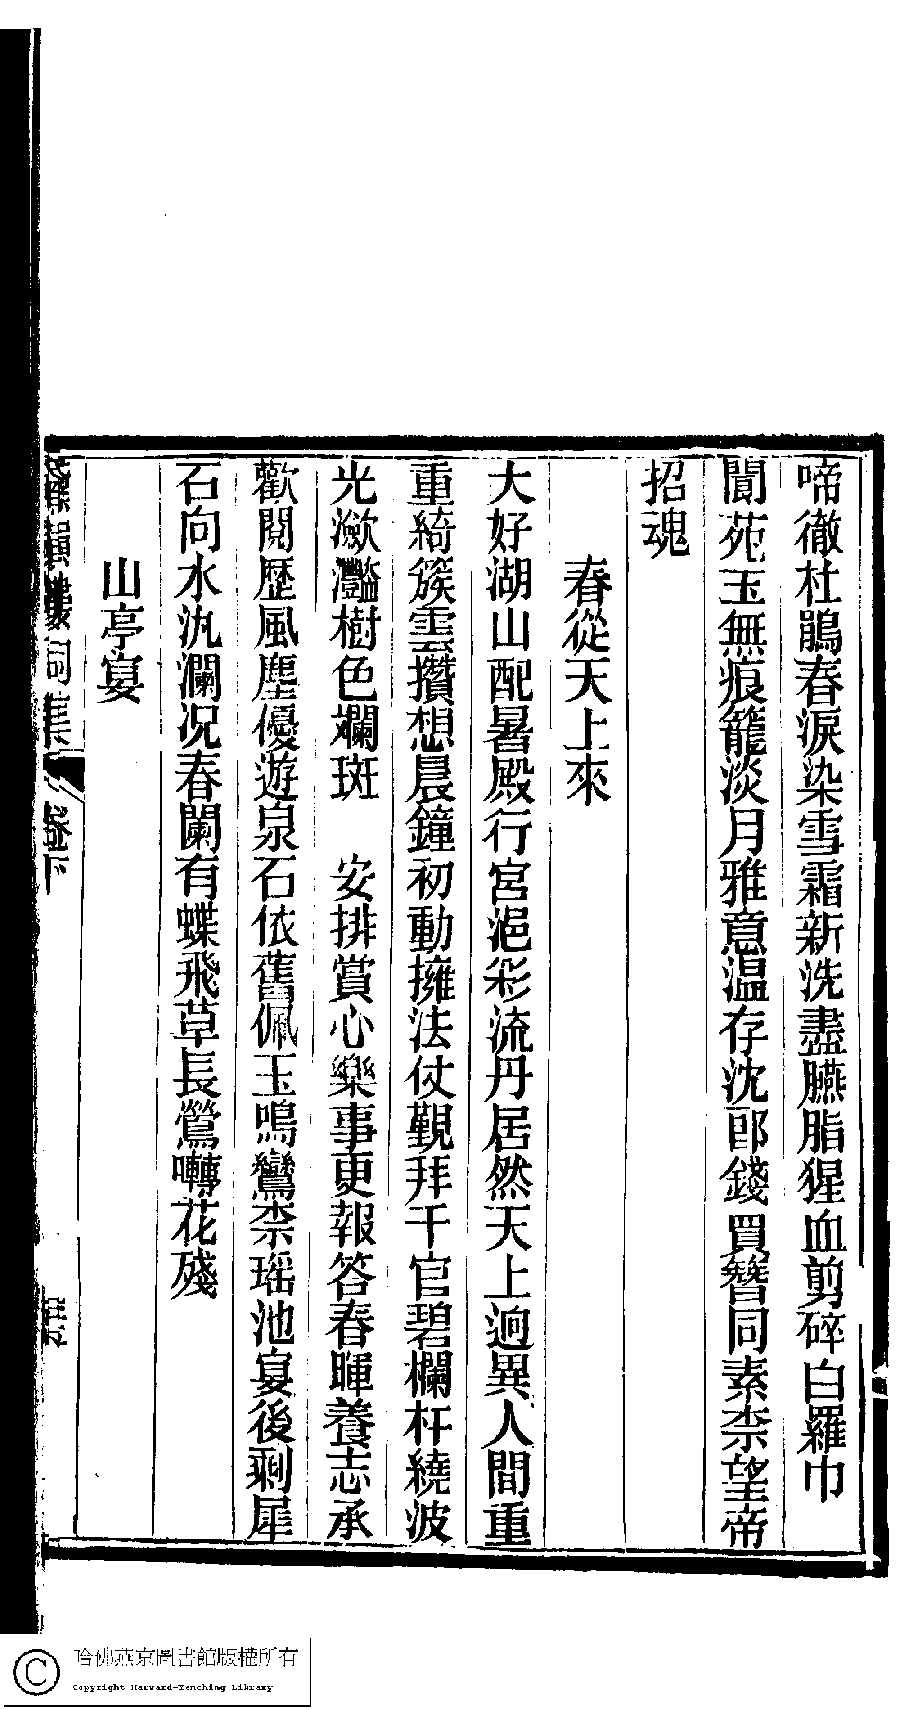 啼徹杜鵑春淚染雪霜新洗盡臙脂猩血剪碎白羅巾
閬苑玉無痕籠淡月雅意温存沈郎錢買簪同素柰望帝
招魂
春從天上來
大好湖山配暑殿行宮浥彩流丹居然天上迥異人間重
重綺簇雲攢想晨鐘初動擁法仗覲拜千官碧欄杆繞波
光瀲灩樹色斕斑　安排賞心樂事更報答春暉養志承
歡閱歷風塵優遊泉石依舊佩玉鳴鸞柰瑶池宴後剩犀
石向水汎瀾况春闌有蝶飛草長鶯囀花殘
山亭宴
詞集
卷下
哈佛燕京圖書館版權所有
Copyright Harvard-Yenching Library